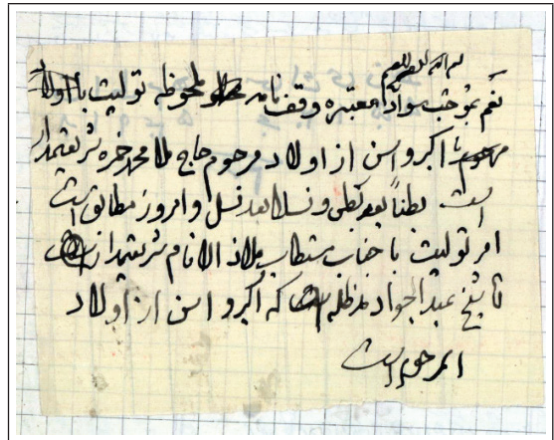 بسم الله الرحمن الرحیم
نعم بموجب سواد معتبره وقف نامه ملحوظه تولیت با اولاد
اکبر و اسن از اولاد مرحوم حاج ملا محمد حمزه شریعتمدار
است بطناً بعد بطن و نسلا بعد نسل و امروز مطابق
امر تولیت با جناب مستطاب ملاذ الانام شریعتمدار
شیخ عبدالجواد مدظله که اکبر و اسن از اولاد
المرحوم است